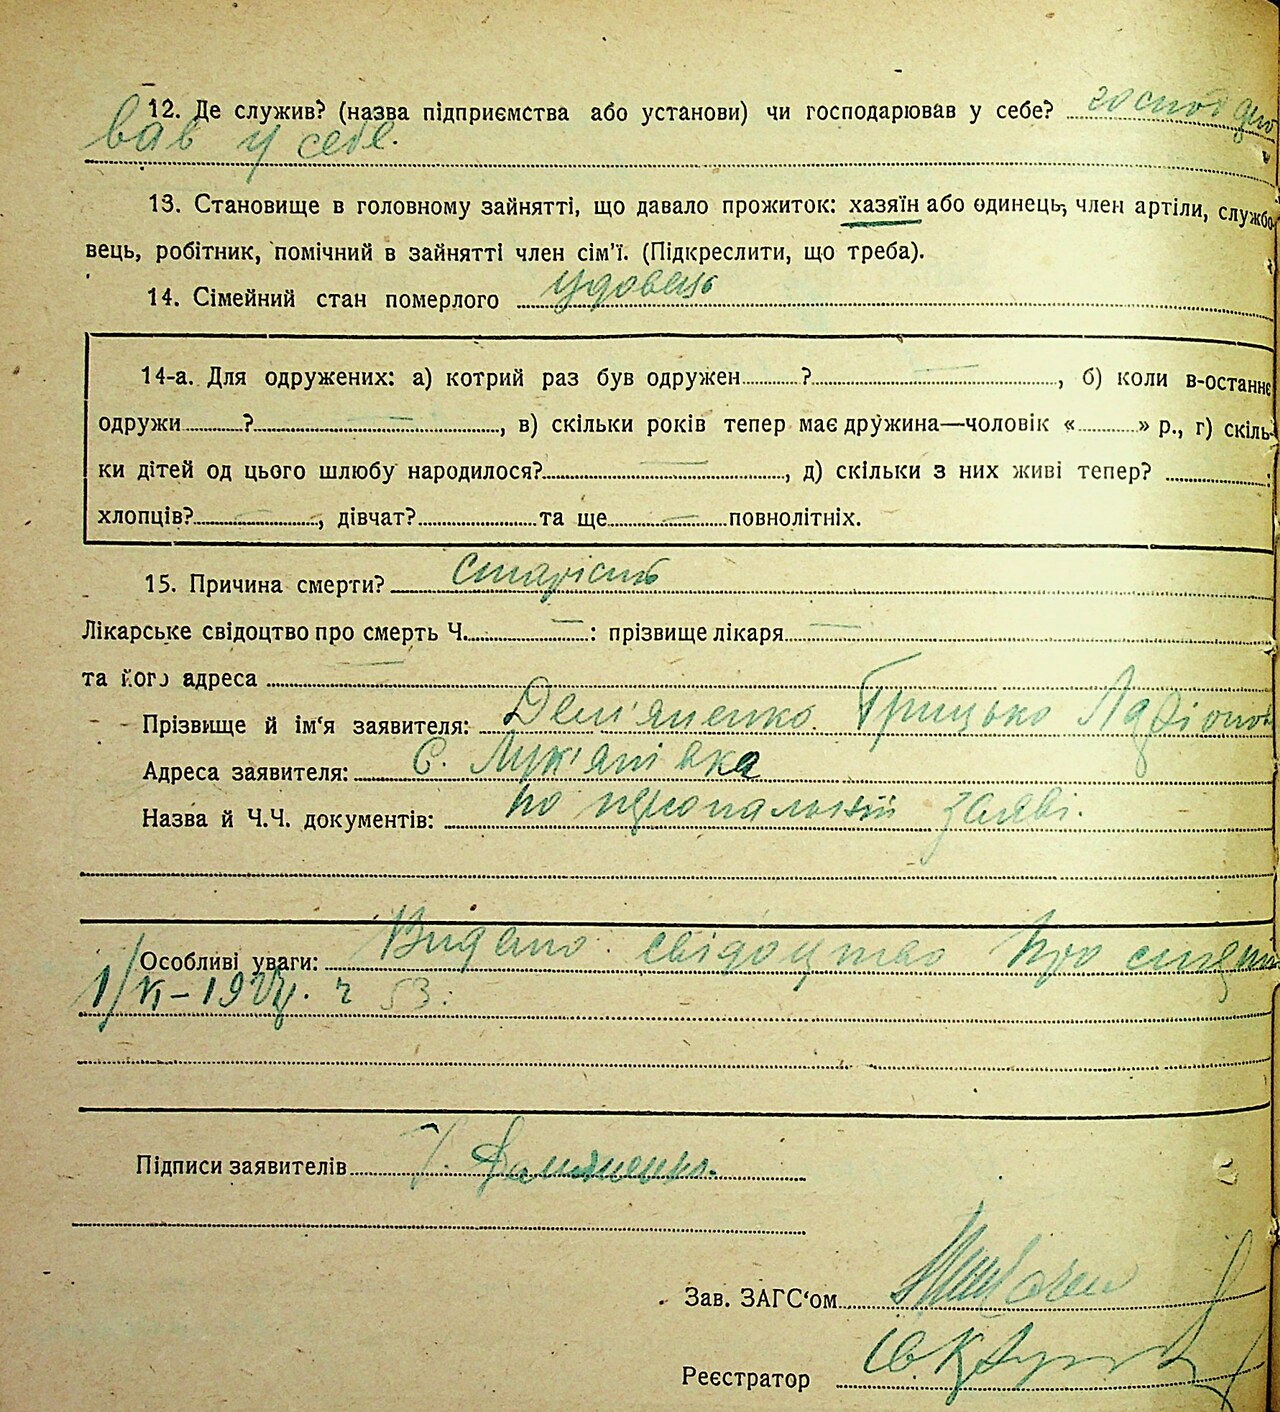 12. Де служив? (назва підприємства або установи) чи господарював у себе? господарю
вав у себе.
13. Становище в головному зайнятті, що давало прожиток: хазяїн або одинець, член артіли, службо-
вець, робітник, помічний в зайнятті член сім'ї. (Підкреслити, що треба).
14. Сімейний стан померлого удовець
14-а. Для одружених: а) котрий раз був одружен ? , б) коли в-останнє
одружи ? , в) скільки років тепер має дружина—чоловік « » р., г) скіль-
ки дітей од цього шлюбу народилося? , д) скільки з них живі тепер? :
хлопців? , дівчат? та ще повнолітніх.
15. Причина смерти? Старість
Лікарське свідоцтво про смерть Ч. : прізвище лікаря
та його адреса
Прізвище й ім'я заявителя: Дем'яненко Грицько
Адреса заявителя: С. Лук'янівка
Назва й Ч.Ч. документів: по персональній заяві.
Особливі уваги: Видано свідоцтво про смерть
1/VI– ч 53.
Підписи заявителів Г. Демяненко.
Зав. ЗАГС'ом
Реєстратор